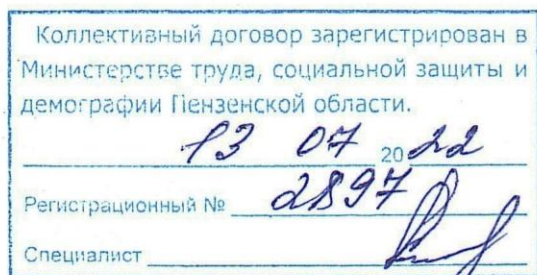 Коллективный договор зарегистрирован в
Министерстве труда, социальной защиты и
демографии Пензенской области.
13 07 2022
Регистрационный № 2897
Специалист